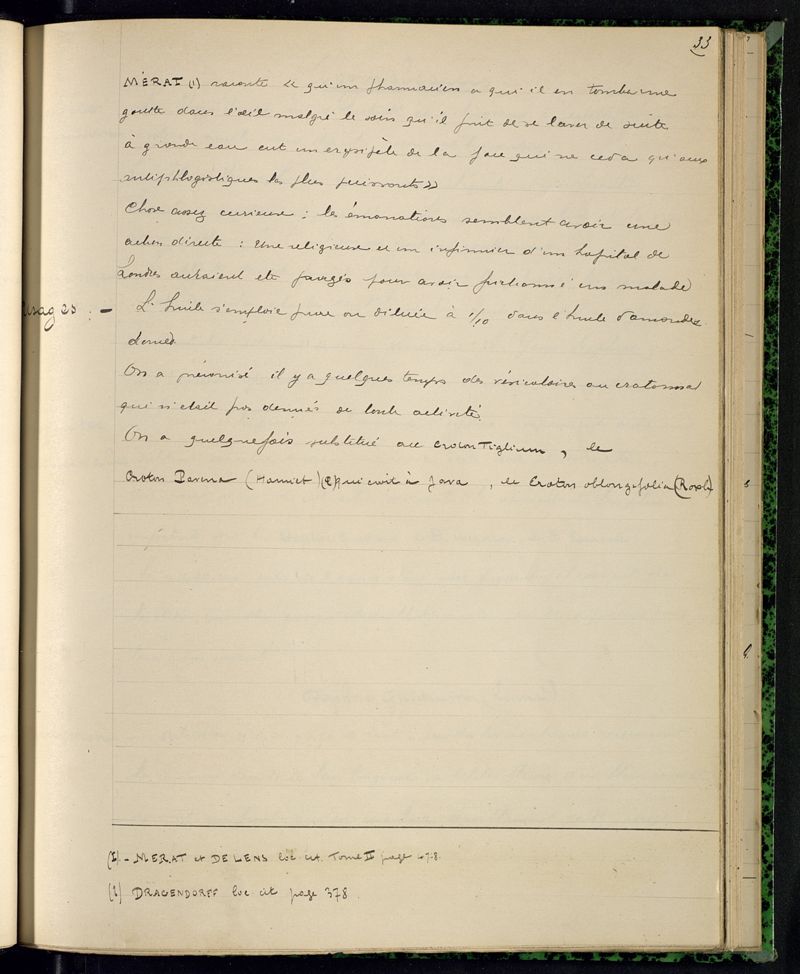 33
MÉRAT (1) raconte « qu'un pharmacien a qui il en tomba une
goutte dans l'œil malgré le soin qu'il prit de se laver de suite
à grande eau eut un erysipèle de la face qui ne ceda qu'aux
antiphlogistiques les plus puissants »
Chose assez curieuse : les émanations semblent avoir une
action directe : Une religieuse et un infirmier d'un hopital de
Londres auraient ete purgés pour avoir frictionné un malade
Usages : - L'huile s'emploie pure ou diluée à 1/10 dans l'huile d'amandes
douces
On a préconisé il y a quelques temps des vésicatoires au croton
qui n'était pas dénués de toute activité.
On a quelquefois substitué au Croton Tiglium, le
Croton Pavana (Hamilt) (2) qui croit à Java, le Croton oblongifolia (Roxb)
(I) - MERAT et DE LENS loc cit. Tome II page 478.
(2) DRAGENDORFF loc cit page 378